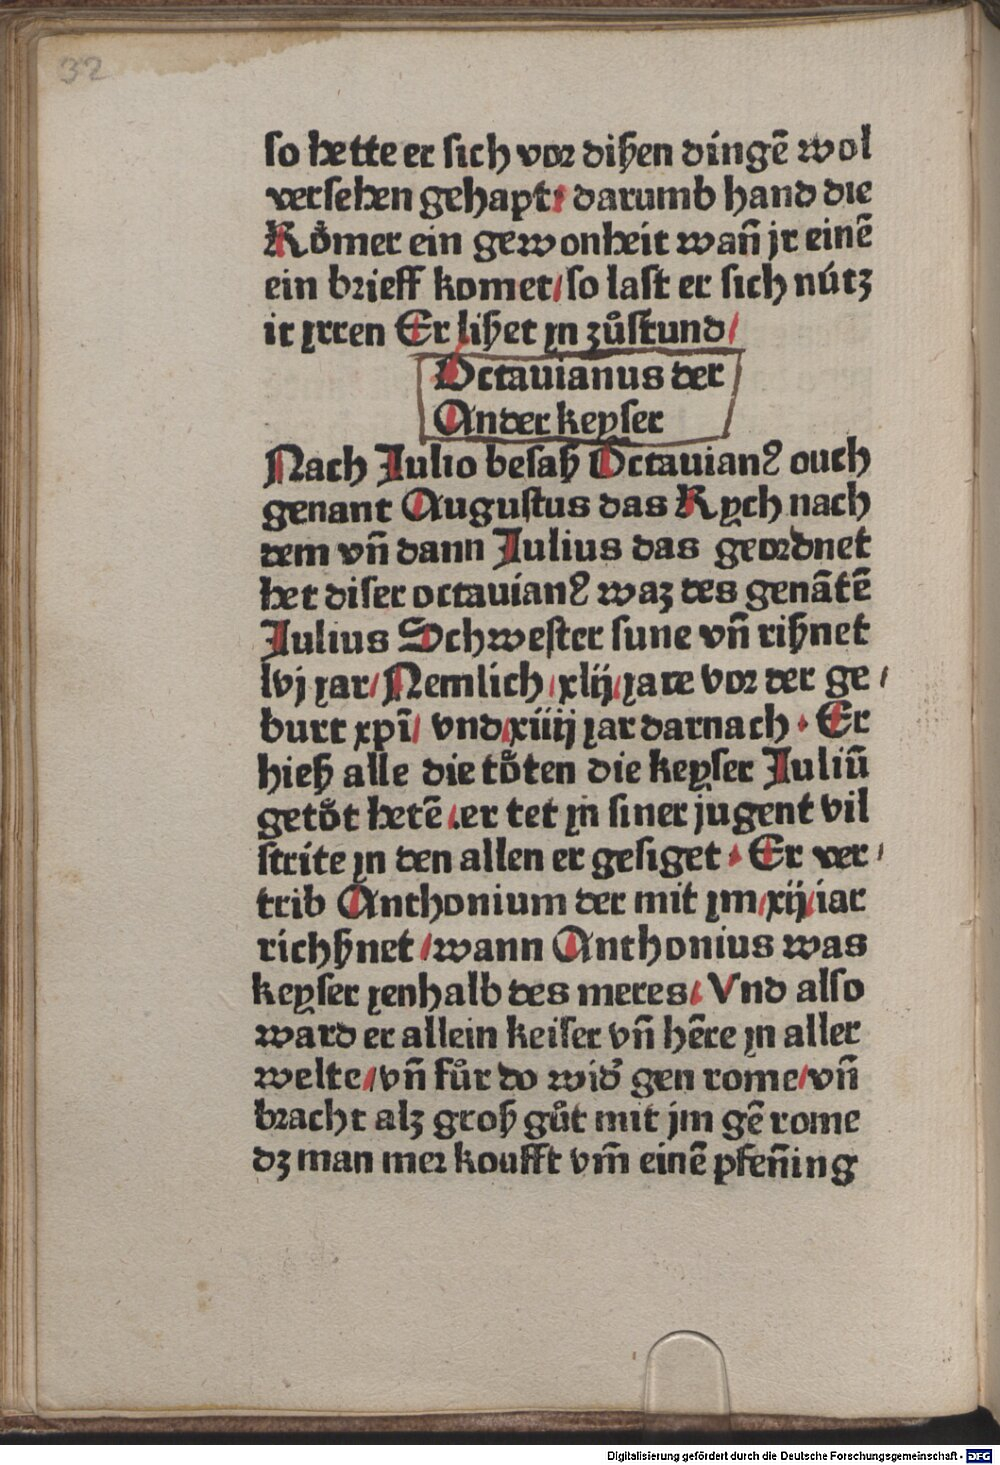 32
so hette er sich vor dißen díngē wol
versehen gehapt: darumb hand die
Rőmer ein gewonheit wañ jr einē
ein brieff komet/so last er sich nútz
it yrren Er lißet yn zůstund/
Octauianus der
Ander keyser
Nach Julio besaß Octauianꝰ ouch
genant Augustus das Rych nach
dem vñ dann Julius das geordnet
het diser octauianꝰ waz des genātē
Julius Schwester sune vñ rißnet
lvj yar/Nemlich/xlij/yare vor der ge/
burt xpī/ vnd/xiiij yar darnach · Er
hieß alle die tőten die keyser Juliū
getőt hetē/.er tet yn siner jugent vil
strite yn den allen er gesiget · Er ver/
trib Anthonium der mit ym/xij/iar
richßnet/wann Anthonius was
keyser yenhalb des meres/ Vnd also
ward er allein keiser vñ hēre yn aller
welte/vñ fůr do wid᷑ gen rome/vñ
bracht alz groß gůt mit jm gē rome
dz man mer koufft vm̃ einē pfeñing
Digitalisierung gefördert durch die Deutsche Forschungsgemeinschaft - DFG